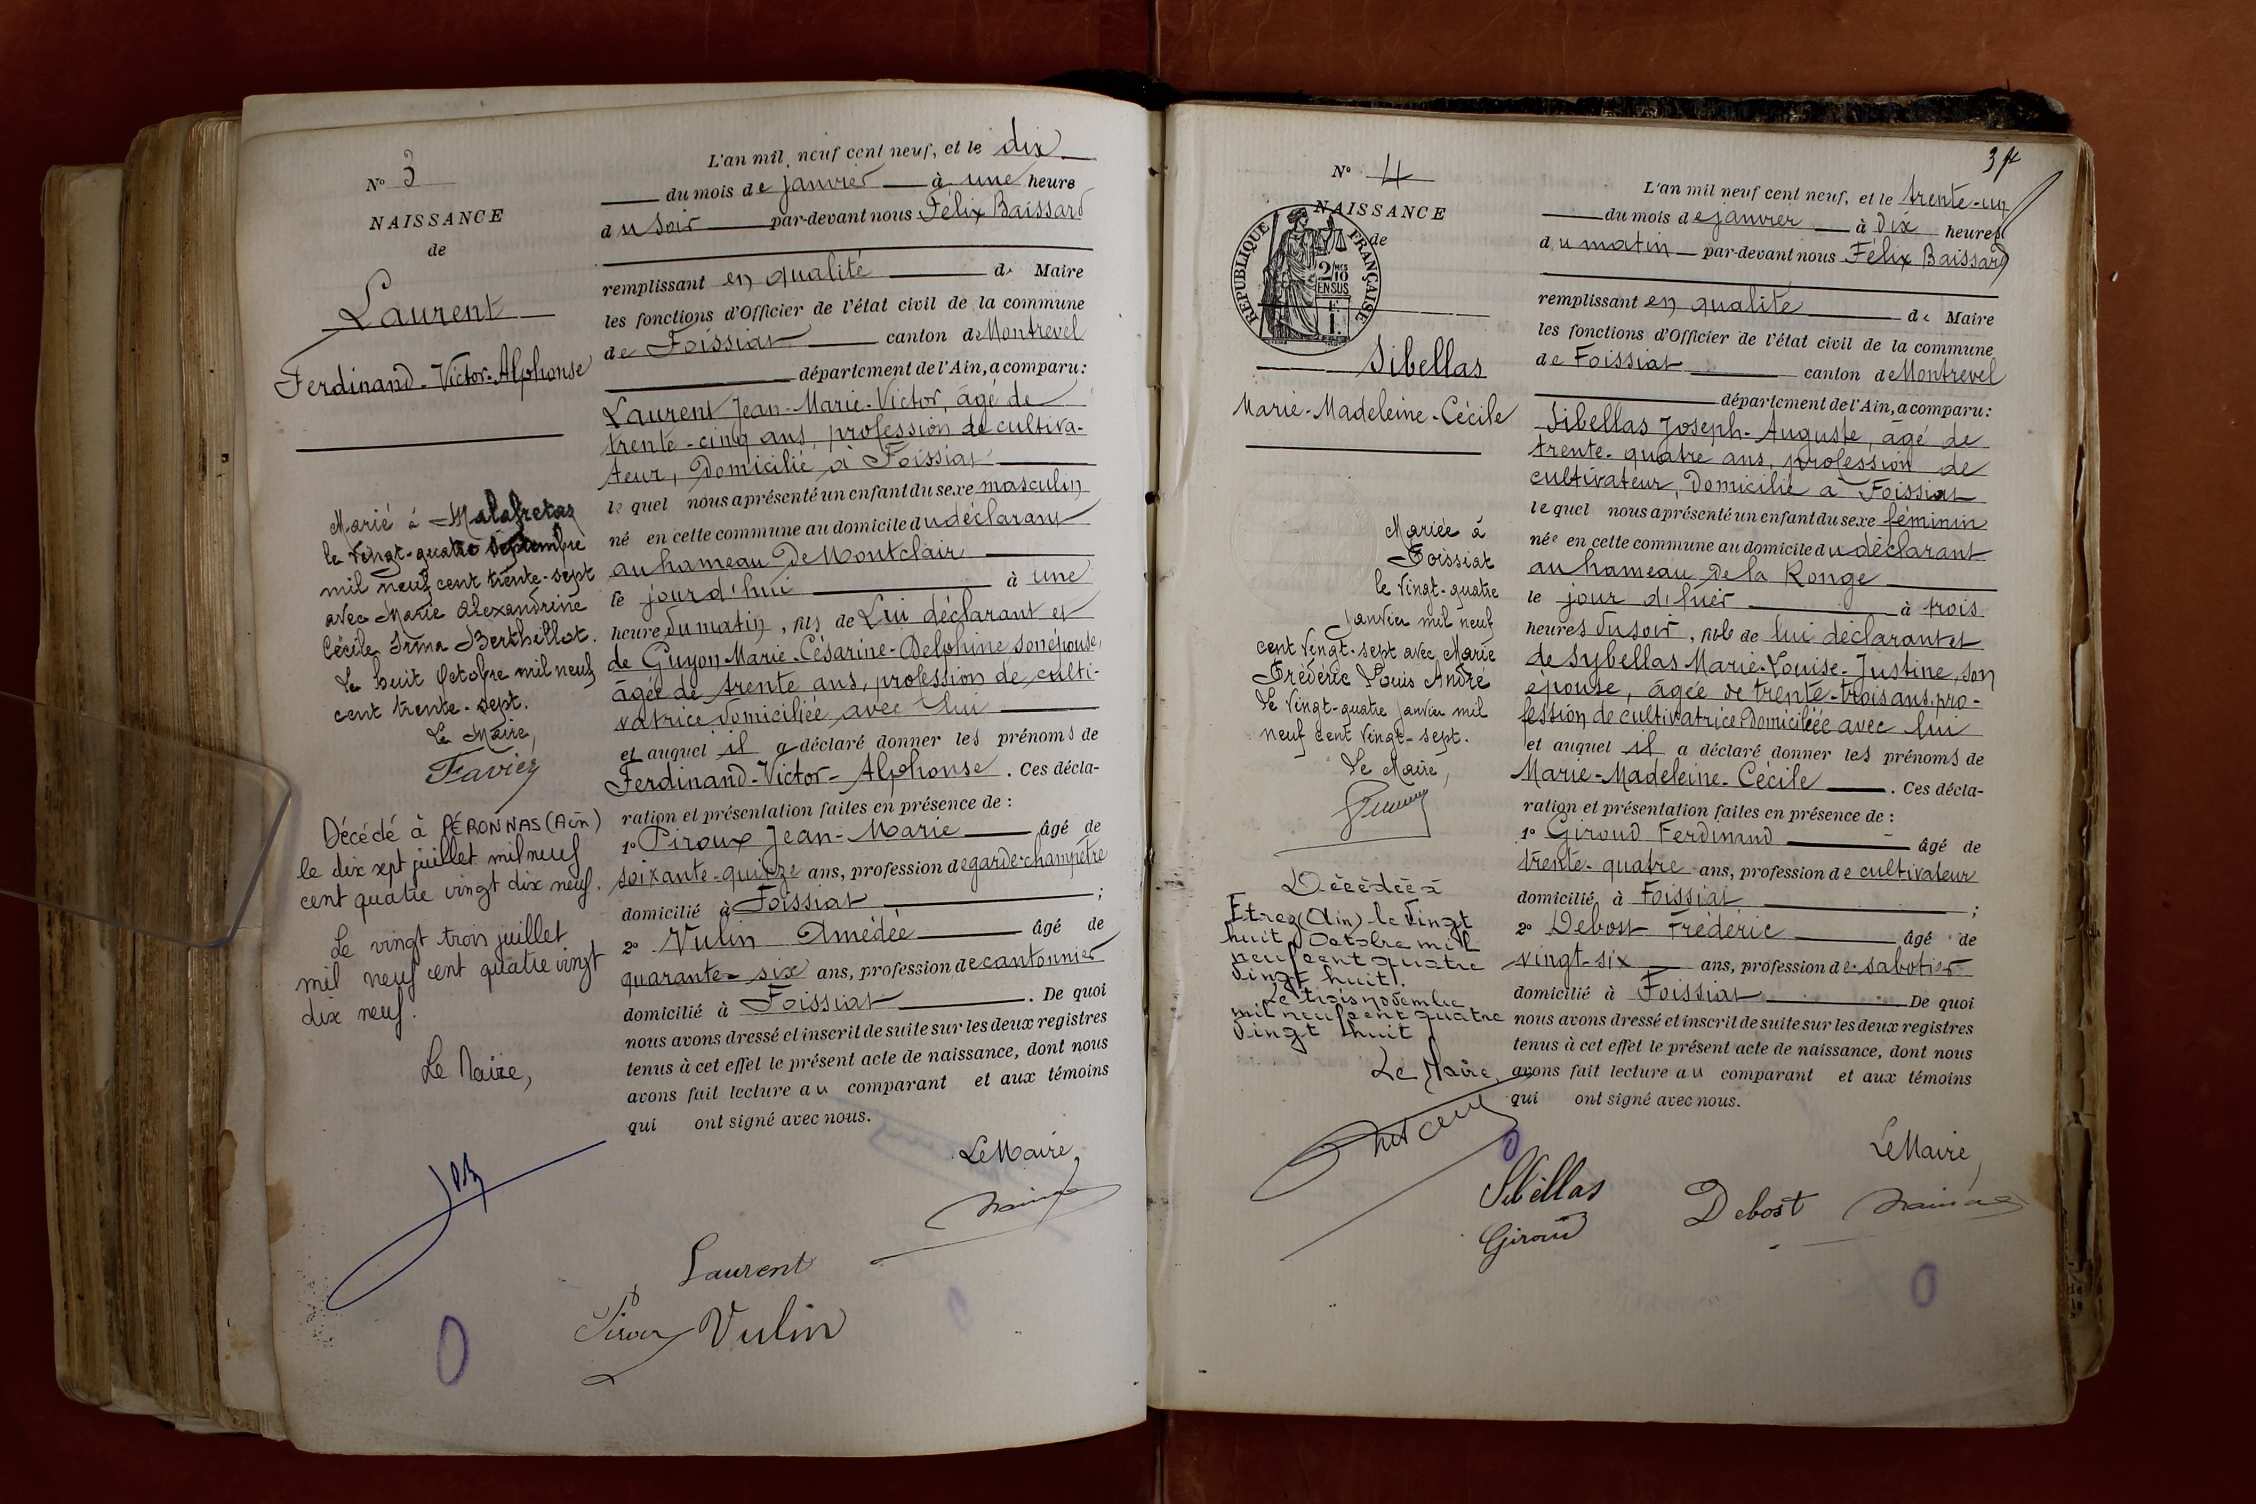 N° 3
NAISSANCE
de
Laurent
Ferdinand-Victor-Alphonse
Marié à Malafretaz
le vingt-quatre septembre
mil neuf cent trente-sept
avec Marie Alexandrine
Cécile Irma Berthellot.
Le huit Octobre mil neuf
cent trente-sept.
Le Maire,
Favier
Décédé à PÉRONNAS (Ain)
le dix sept juillet mil neuf
cent quatre vingt dix neuf.
Le vingt trois juillet
mil neuf cent quatre vingt
dix neuf.
Le Maire,
L'an mil neuf cent neuf, et le dix
du mois de janvier à une heure
du soir par-devant nous Félix Baissard
remplissant en qualité de Maire
les fonctions d'Officier de l'état civil de la commune
de Foissiat canton de Montrevel
département de l'Ain, a comparu:
Laurent Jean-Marie-Victor, âgé de
trente-cinq ans, profession de cultiva-
teur, domicilié à Foissiat
lequel nous a présenté un enfant du sexe masculin
né en cette commune au domicile du déclarant
au hameau de Montclair
le jour d'hui à une
heure du matin, fils de Lui déclarant et
de Guyon Marie-Césarine-Delphine son épouse,
âgée de trente ans, profession de culti-
vatrice domiciliée avec lui
et auquel il a déclaré donner les prénoms de
Ferdinand-Victor-Alphonse. Ces décla-
ration et présentation faites en présence de :
1° Piroux Jean-Marie âgé de
soixante-quinze ans, profession de garde-champêtre
domicilié à Foissiat ;
2° Vulin Amédée âgé de
quarante-six ans, profession de cantonnier
domicilié à Foissiat . De quoi
nous avons dressé et inscrit de suite sur les deux registres
tenus à cet effet le présent acte de naissance, dont nous
avons fait lecture au comparant et aux témoins
qui ont signé avec nous.
Le Maire,
Laurent
Vulin
N° 4
NAISSANCE
de
RÉPUBLIQUE FRANÇAISE
2/10
EN SUS
Sibellas
Marie-Madeleine-Cécile
Mariée à
Foissiat
le vingt-quatre
janvier mil neuf
cent vingt-sept avec Marie
Frédéric Louis André
Le vingt-quatre janvier mil
neuf cent vingt-sept.
Le Maire,
Décédée à
Etrez (Ain) le vingt
huit Octobre mil
neuf cent quatre
vingt huit.
Le trois novembre
mil neuf cent quatre
vingt huit
Le Maire,
L'an mil neuf cent neuf, et le trente-un
du mois de janvier à dix heures
du matin par-devant nous Félix Baissard
remplissant en qualité de Maire
les fonctions d'Officier de l'état civil de la commune
de Foissiat canton de Montrevel
département de l'Ain, a comparu:
Sibellas Joseph-Auguste, âgé de
trente-quatre ans, profession de
cultivateur, domicilié à Foissiat
lequel nous a présenté un enfant du sexe féminin
née en cette commune au domicile du déclarant
au hameau de la Ronge
le jour d'hier à trois
heures du soir, fille de lui déclarant et
de Sybellas Marie-Louise-Justine, son
épouse, âgée de trente-trois ans, pro-
fession de cultivatrice domiciliée avec lui
et auquel il a déclaré donner les prénoms de
Marie-Madeleine-Cécile . Ces décla-
ration et présentation faites en présence de :
1° Giroud Ferdinand âgé de
trente-quatre ans, profession de cultivateur
domicilié à Foissiat ;
2° Debost Frédéric âgé de
vingt-six ans, profession de sabotier
domicilié à Foissiat De quoi
nous avons dressé et inscrit de suite sur les deux registres
tenus à cet effet le présent acte de naissance, dont nous
avons fait lecture au comparant et aux témoins
qui ont signé avec nous.
Le Maire,
Sibellas
Debost
Giroud